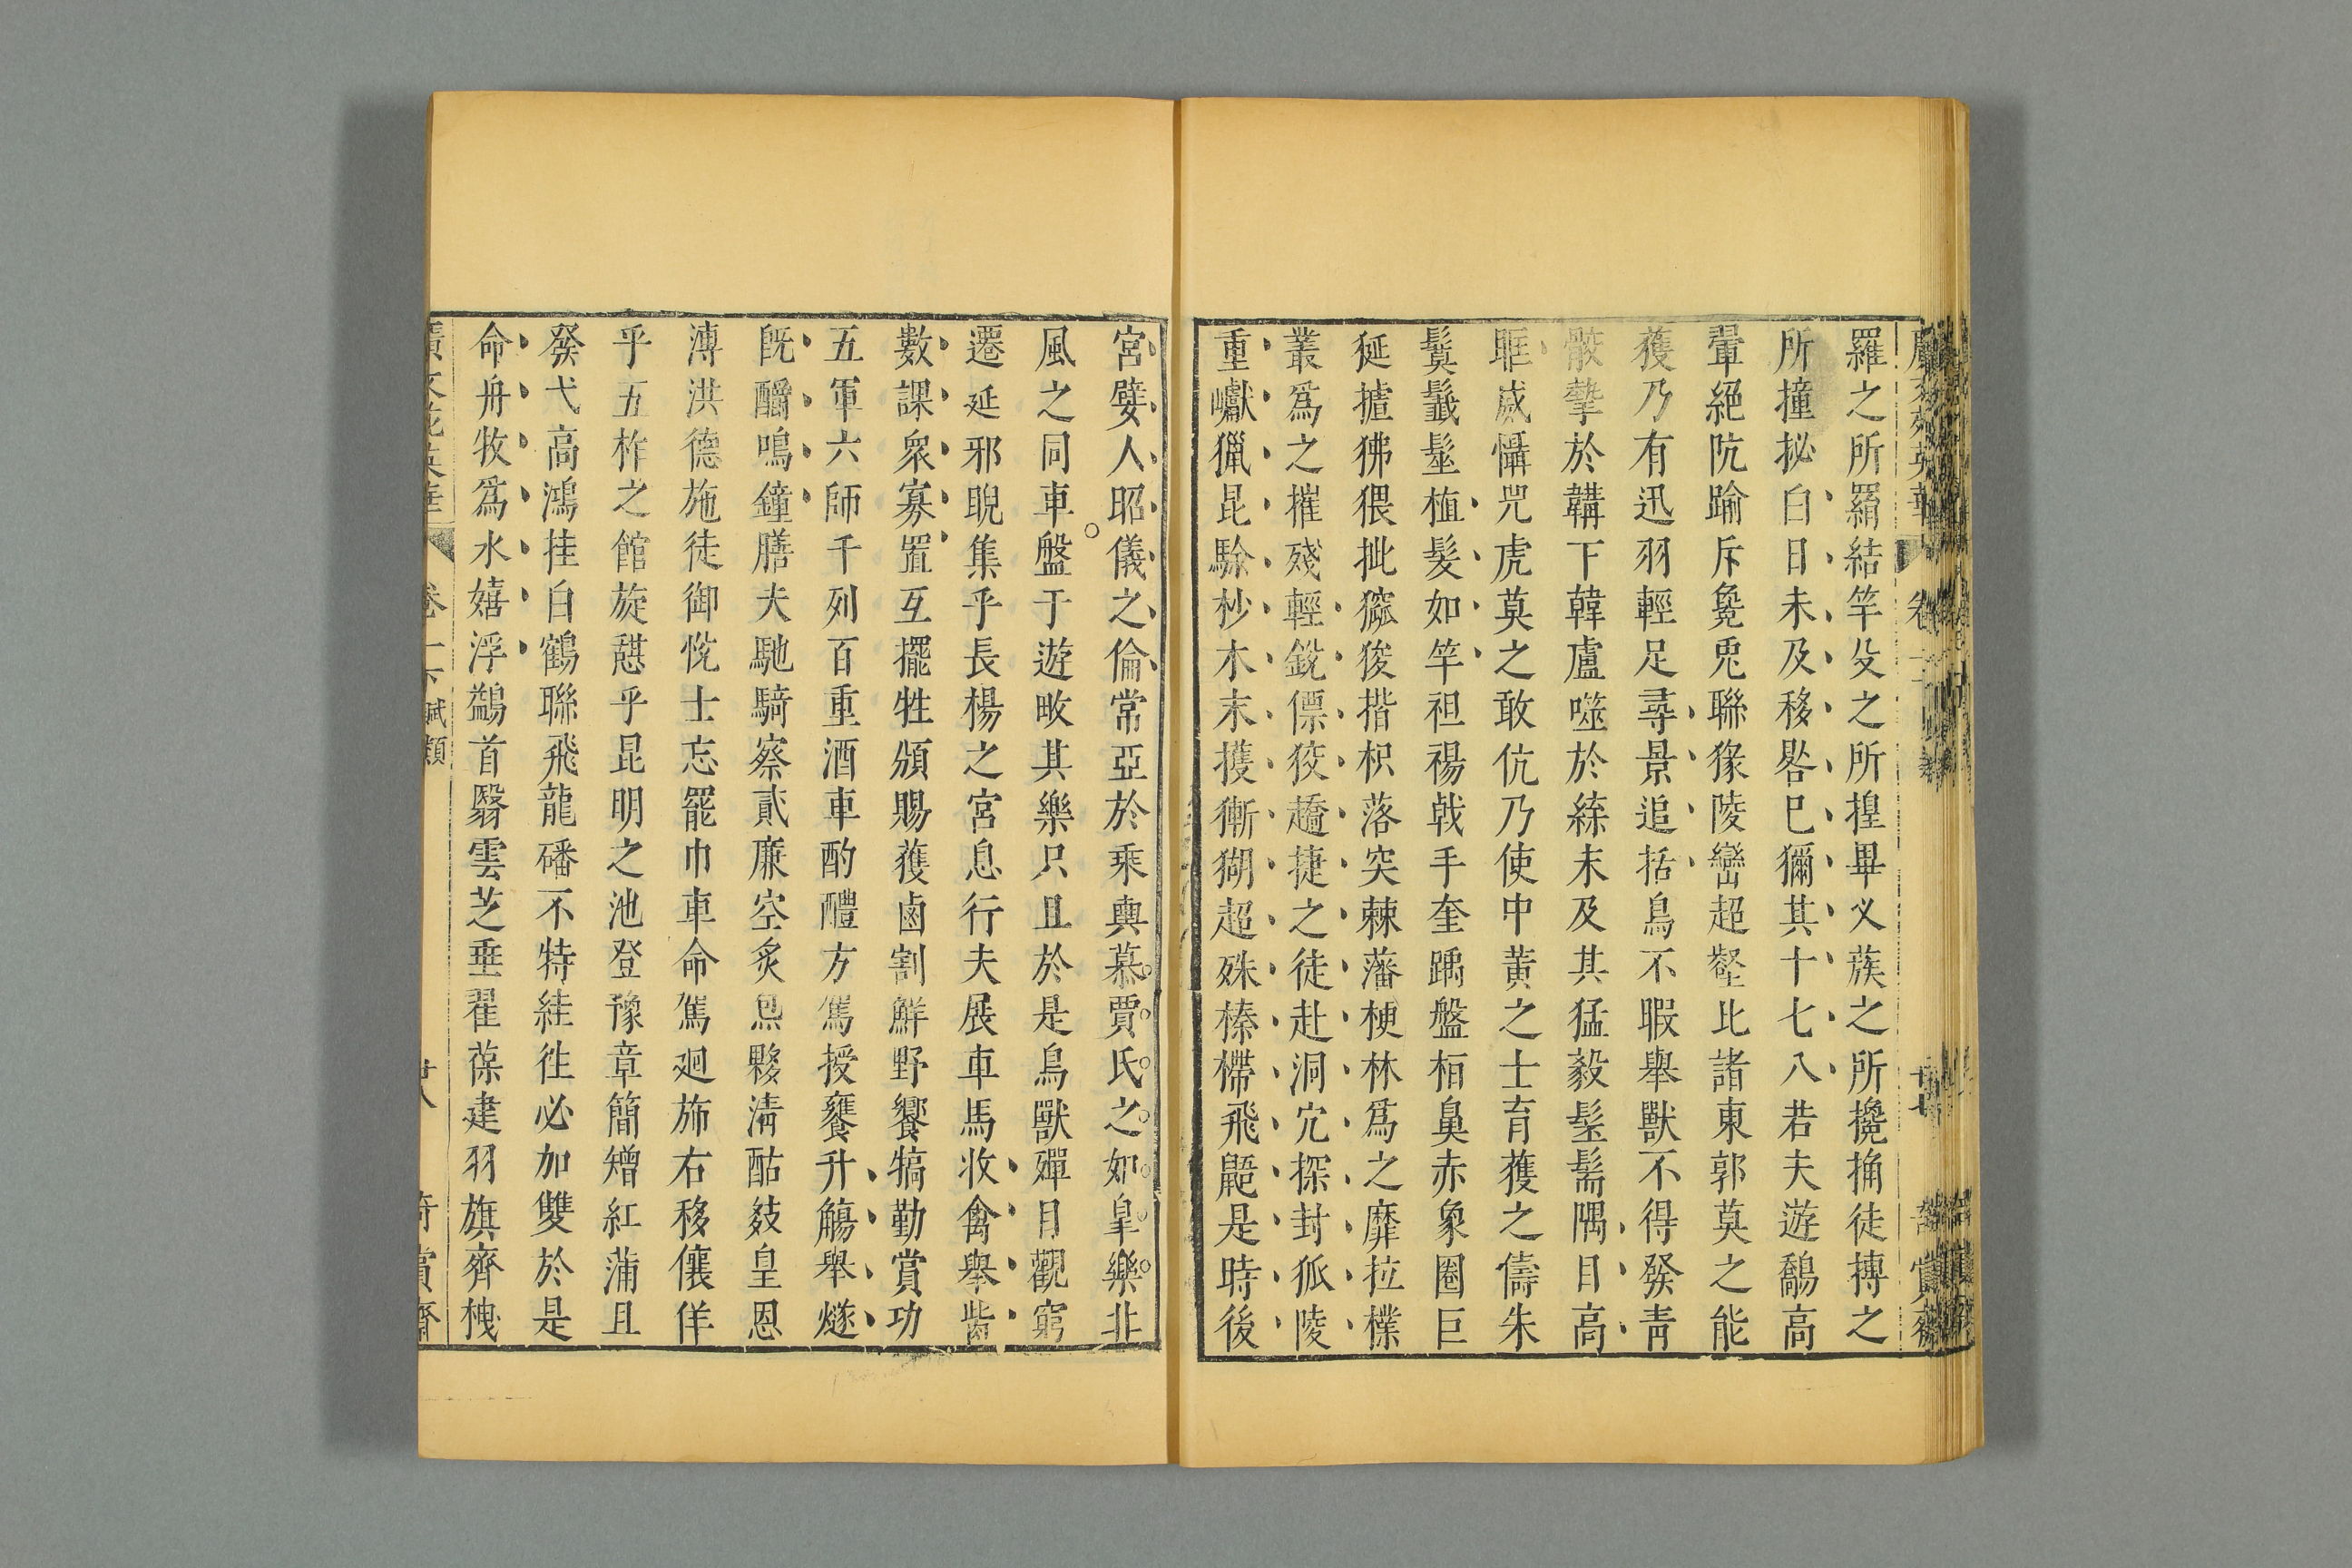 羅之所羂結竿殳之所揘畢义蔟之所攙捔徒搏之
所撞㧙白日未及移晷已獮其十七八若夫遊鷮高
翬絕阬踰斥毚兎聯猭陵巒超壑比諸東郭莫之能
獲乃有迅羽輕足尋景追括鳥不暇舉獸不得發青
骹摯於韝下韓盧噬於緤末及其猛毅髬髵隅目高
眶威懾兕虎莫之敢伉乃使中黃之士育獲之儔朱
鬕䰂髽植髮如竿袒裼戟手奎踽盤桓鼻赤象圈巨
狿摣狒猥㧗窳狻揩枳落突棘藩梗林爲之靡拉樸
叢爲之摧殘輕銳僄狡趫捷之徒赴洞穴探封狐陵
重巘獵昆駼杪木末擭獑猢超殊榛㯗飛鼯是時後
宮嬖人昭儀之倫常亞於乘輿慕賈氏之如皐樂北
風之同車盤于遊畋其樂只且於是鳥獸殫目觀窮
遷延邪睨集乎長楊之宮息行夫展車馬收禽舉胔
數課衆寡置互擺牲頒賜獲鹵割鮮野饗犒勤賞功
五軍六師千列百重酒車酌醴方駕授饔升觴舉燧
旣釂鳴鐘膳夫馳騎察貳廉空炙炰夥淸酤㩻皇恩
溥洪德施徒御悅士忘罷巾車命駕廻斾右移儴佯
乎五柞之館旋憇乎昆明之池登豫章簡矰紅蒲且
發弋高鴻挂白鶴聯飛龍磻不特絓徃必加雙於是
命舟牧爲水嬉浮鷁首翳雲芝垂翟葆建羽旗齊栧
廣文苑英華 卷十下 賦類 奇賞齋